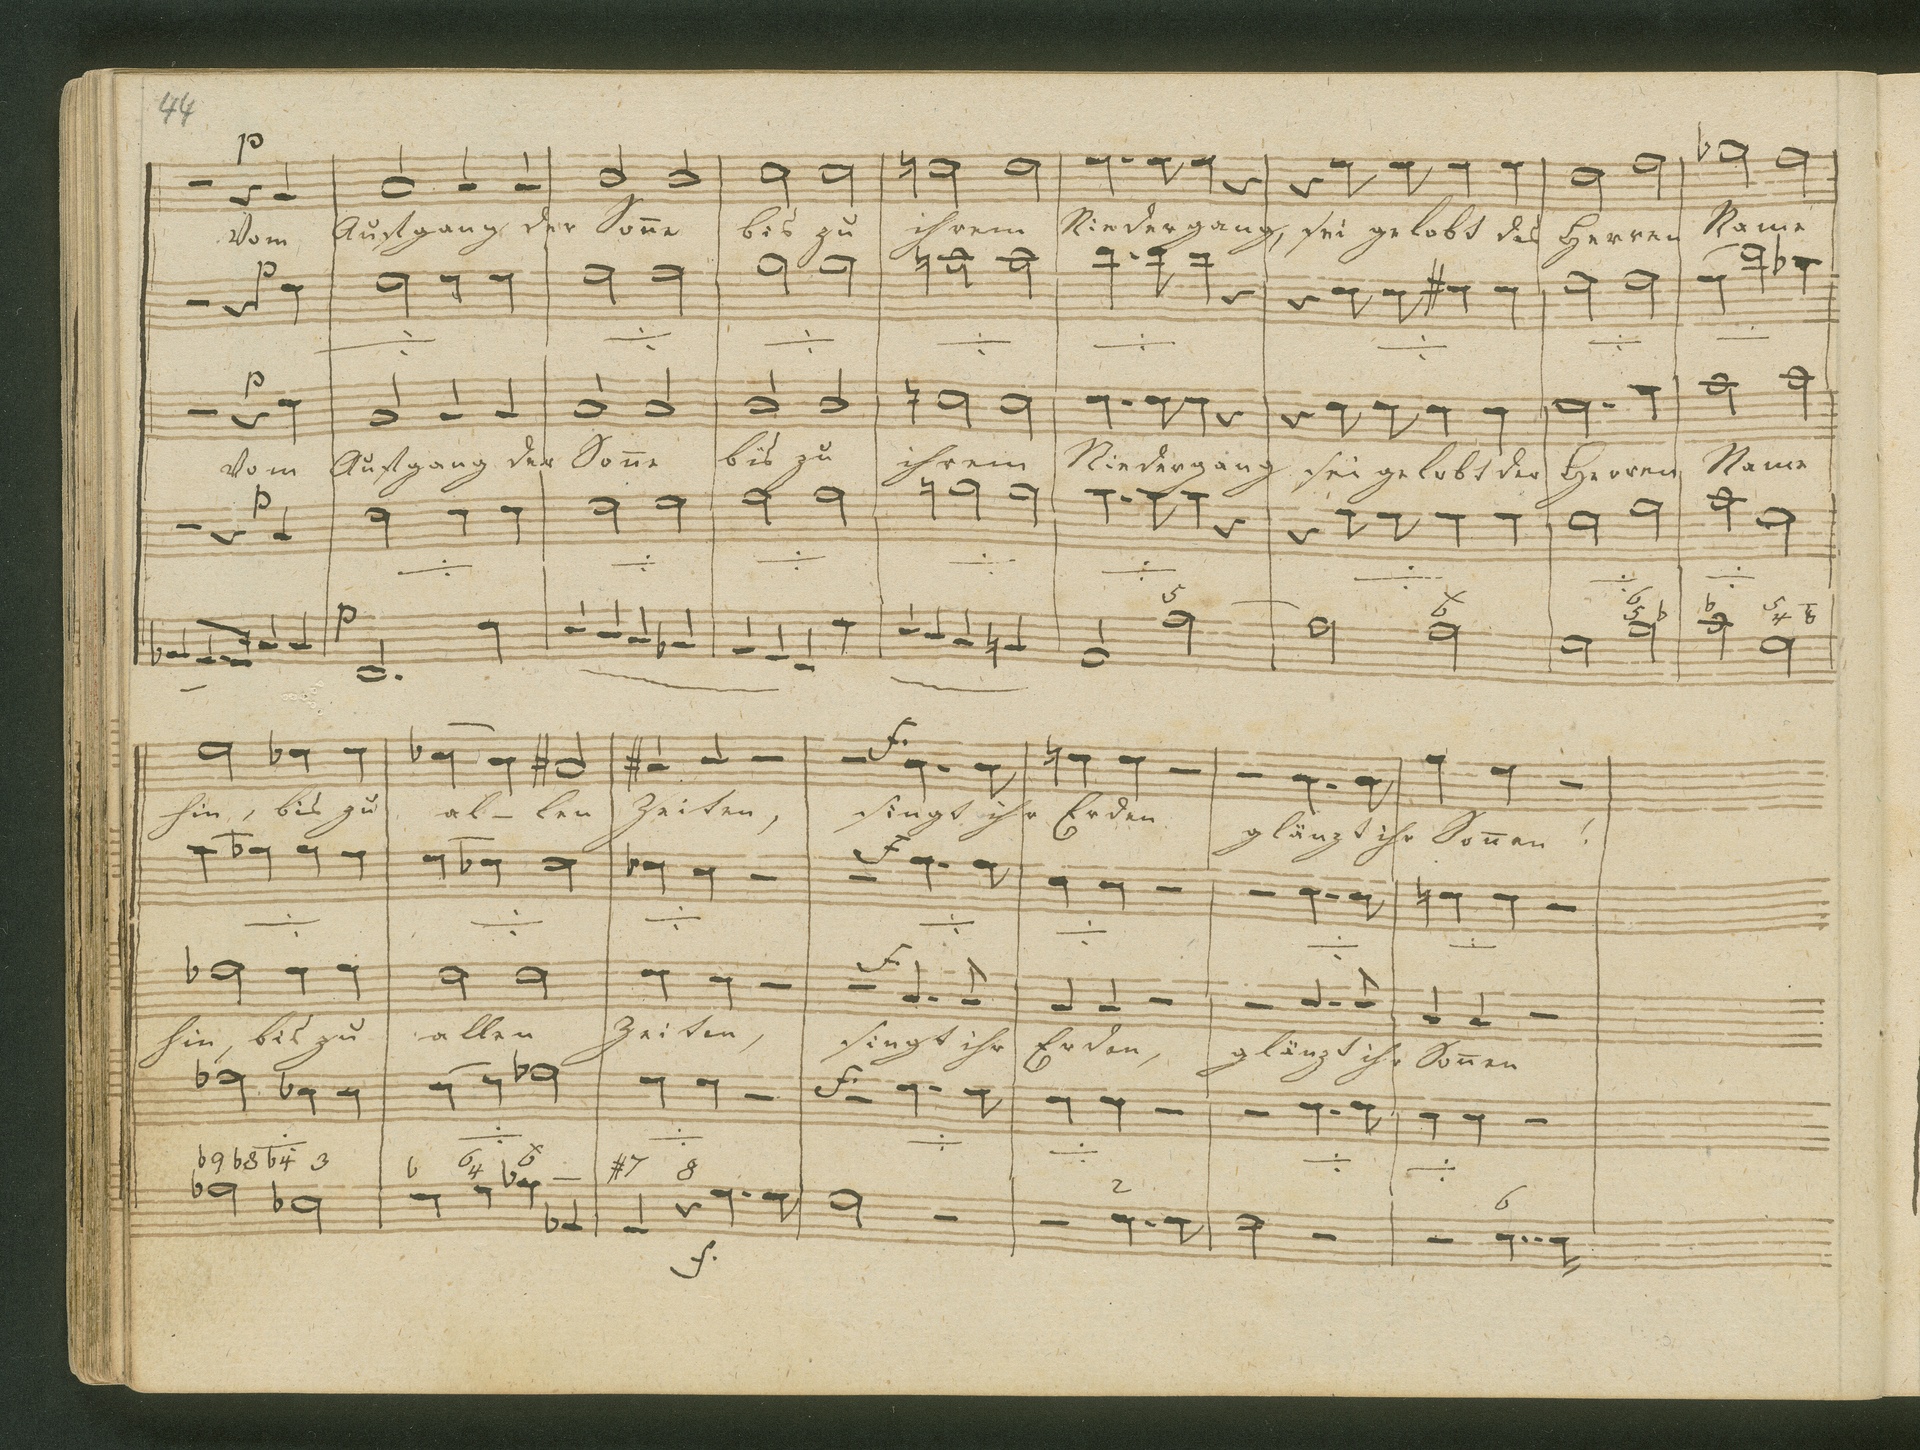 44
p
Vom Aufgang der Soñe bis zu ihrem Niedergang, sei gelobt des Herren Name
p
p
Vom Aufgang der Soñe bis zu ihrem Niedergang sei gelobt der Herren Name
p
p 5 6 6 5 ♭ ♭ 5 4 8
f.
hin, bis zu al-len Zeiten, singt ihr Erden glänzt ihr Soñen!
f
f.
hin, bis zu allen Zeiten, singt ihr Erden, glänzt ihr Soñen
f.
♭9 ♭8 ♭4 3 ♭ 6 4 6 #7 8 2 6
f.